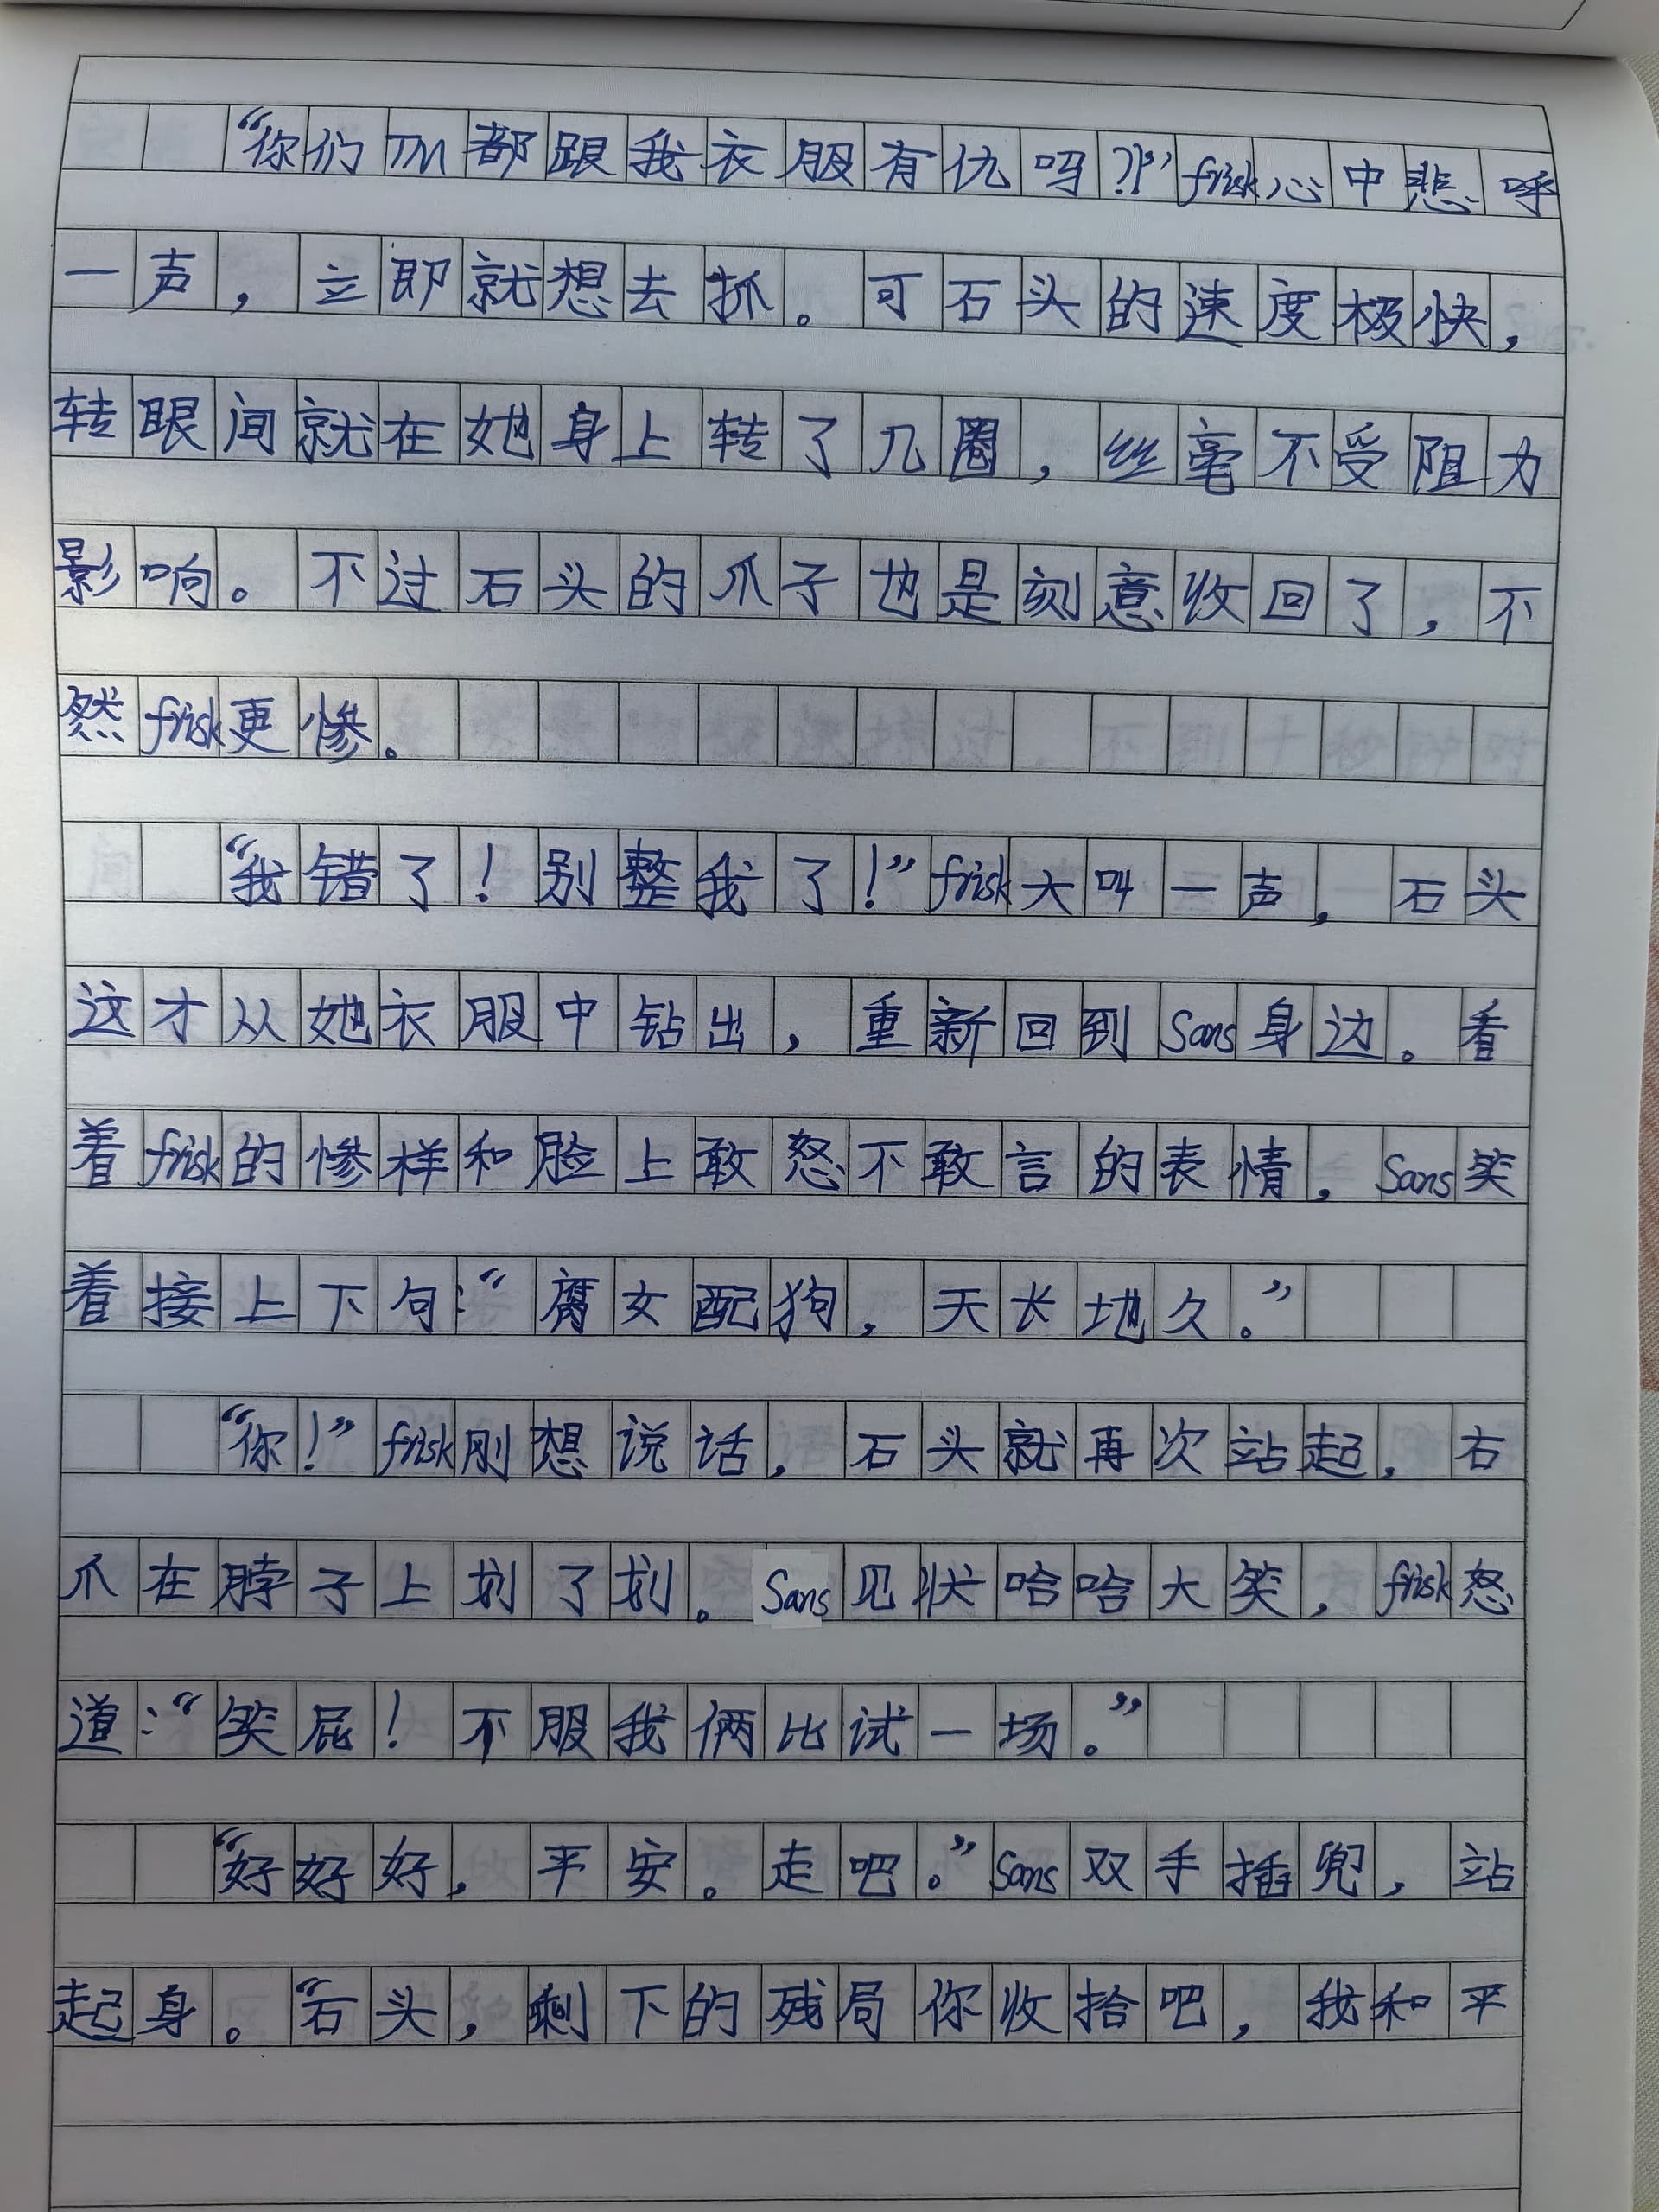 “你们TM都跟我衣服有仇吗?!”frisk心中悲呼
一声，立即就想去抓。可石头的速度极快，
转眼间就在她身上转了几圈，丝毫不受阻力
影响。不过石头的爪子也是刻意收回了，不
然frisk更惨。
“我错了！别整我了！”frisk大叫一声，石头
这才从她衣服中钻出，重新回到Sans身边。看
着frisk的惨样和脸上敢怒不敢言的表情，Sans笑
着接上下句：“腐女配狗，天长地久。”
“你！”frisk刚想说话，石头就再次站起，右
爪在脖子上划了划。Sans见状哈哈大笑，frisk怒
道：“笑屁！不服我俩比试一场。”
“好好好，平安。走吧。”Sans双手插兜，站
起身。“石头，剩下的残局你收拾吧，我和平